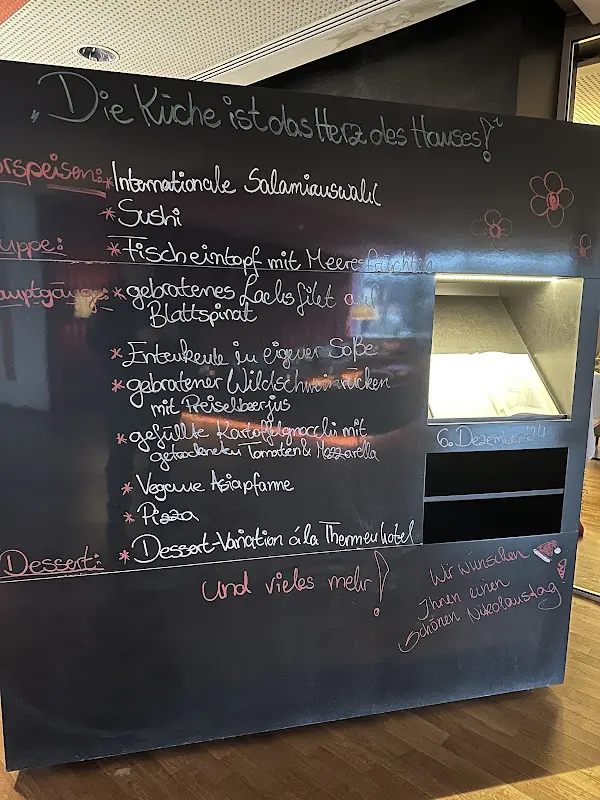 „Die Küche ist das Herz des Hauses!"
orspeisen: * Internationale Salamiauswahl
* Sushi
uppe: * Fischeintopf mit Meeresfrüchten
auptgänge: * gebratenes Lachsfilet auf
Blattspinat
* Entenkeule in eigener Soße
* gebratener Wildschweinrücken
mit Preiselbeerjus
* gefüllte Kartoffelgnocchi mit
getrockneten Tomaten & Mozzarella
* Vegane Asiapfanne
* Pizza
Dessert: * Dessert-Variation á la Thermenhotel
Und vieles mehr!
6. Dezember
Wir wünschen
Ihnen einen
schönen Nikolaustag!